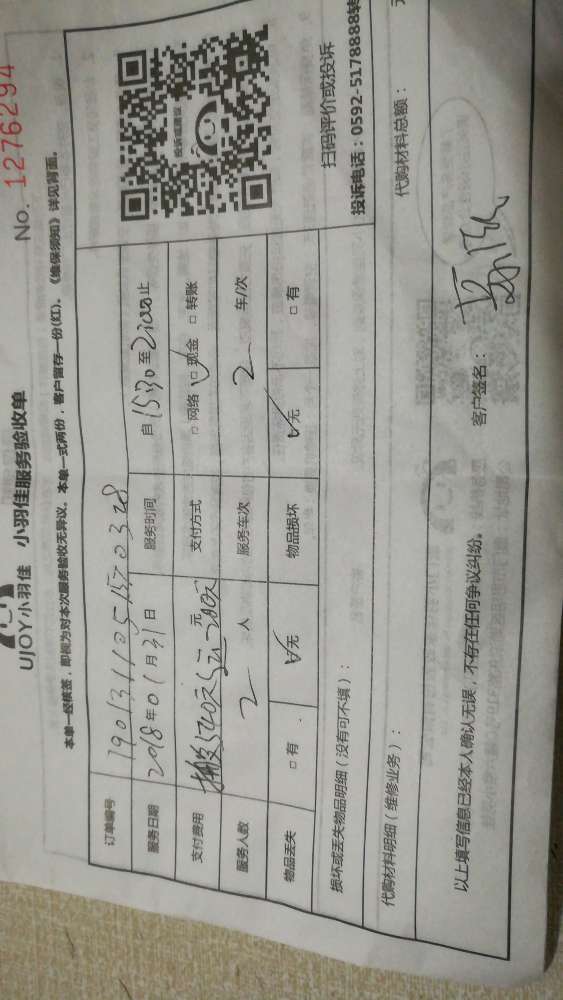 UJOY小羽佳 小羽佳服务验收单
No. 1276294
本单一经核签，即视为对本次服务验收无异议，本单一式两份，客户留存一份(红)。《维保须知》详见背面。
订单编号 1901311051570328
服务日期 2018年01月31日 服务时间 自1530至2100止
支付费用 搬家540元 元 支付方式 □网络 □现金 □转账
服务人数 2人 服务车次 2车/次
物品丢失 □有 □无 物品损坏 □无 □有
投诉或建议
扫码评价或投诉
投诉电话：0592-5178888转
损坏或丢失物品明细（没有可不填）：
代购材料明细（维修业务）： 代购材料总额： 元
以上填写信息已经本人确认无误，不存在任何争议纠纷。 客户签名：